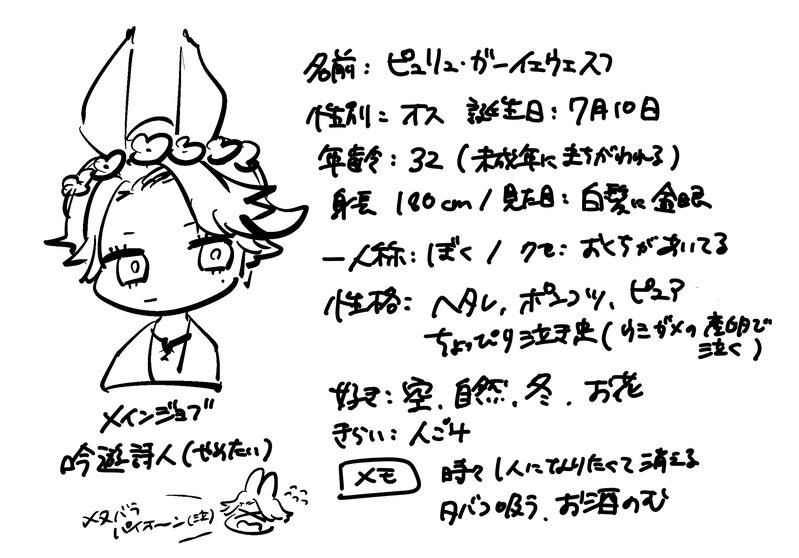 名前:ピュリュ・ガーイェウェスフ
性別:オス 誕生日:7月10日
年齢:32(未成年にまちがわれる)
身長 180cm/見た目:白髪に金眼
一人称:ぼく/クセ:おくちがあいてる
性格:ヘタレ、ポンコツ、ピュア
ちょっぴり泣き虫(ウミガメの産卵で
泣く)
好き:空、自然、冬、お花
きらい:人ごみ
メモ 時々1人になりたくて消える
タバコ吸う、お酒のむ
メインジョブ
吟遊詩人(やめたい)
メタバラ
パイオーン(泣)